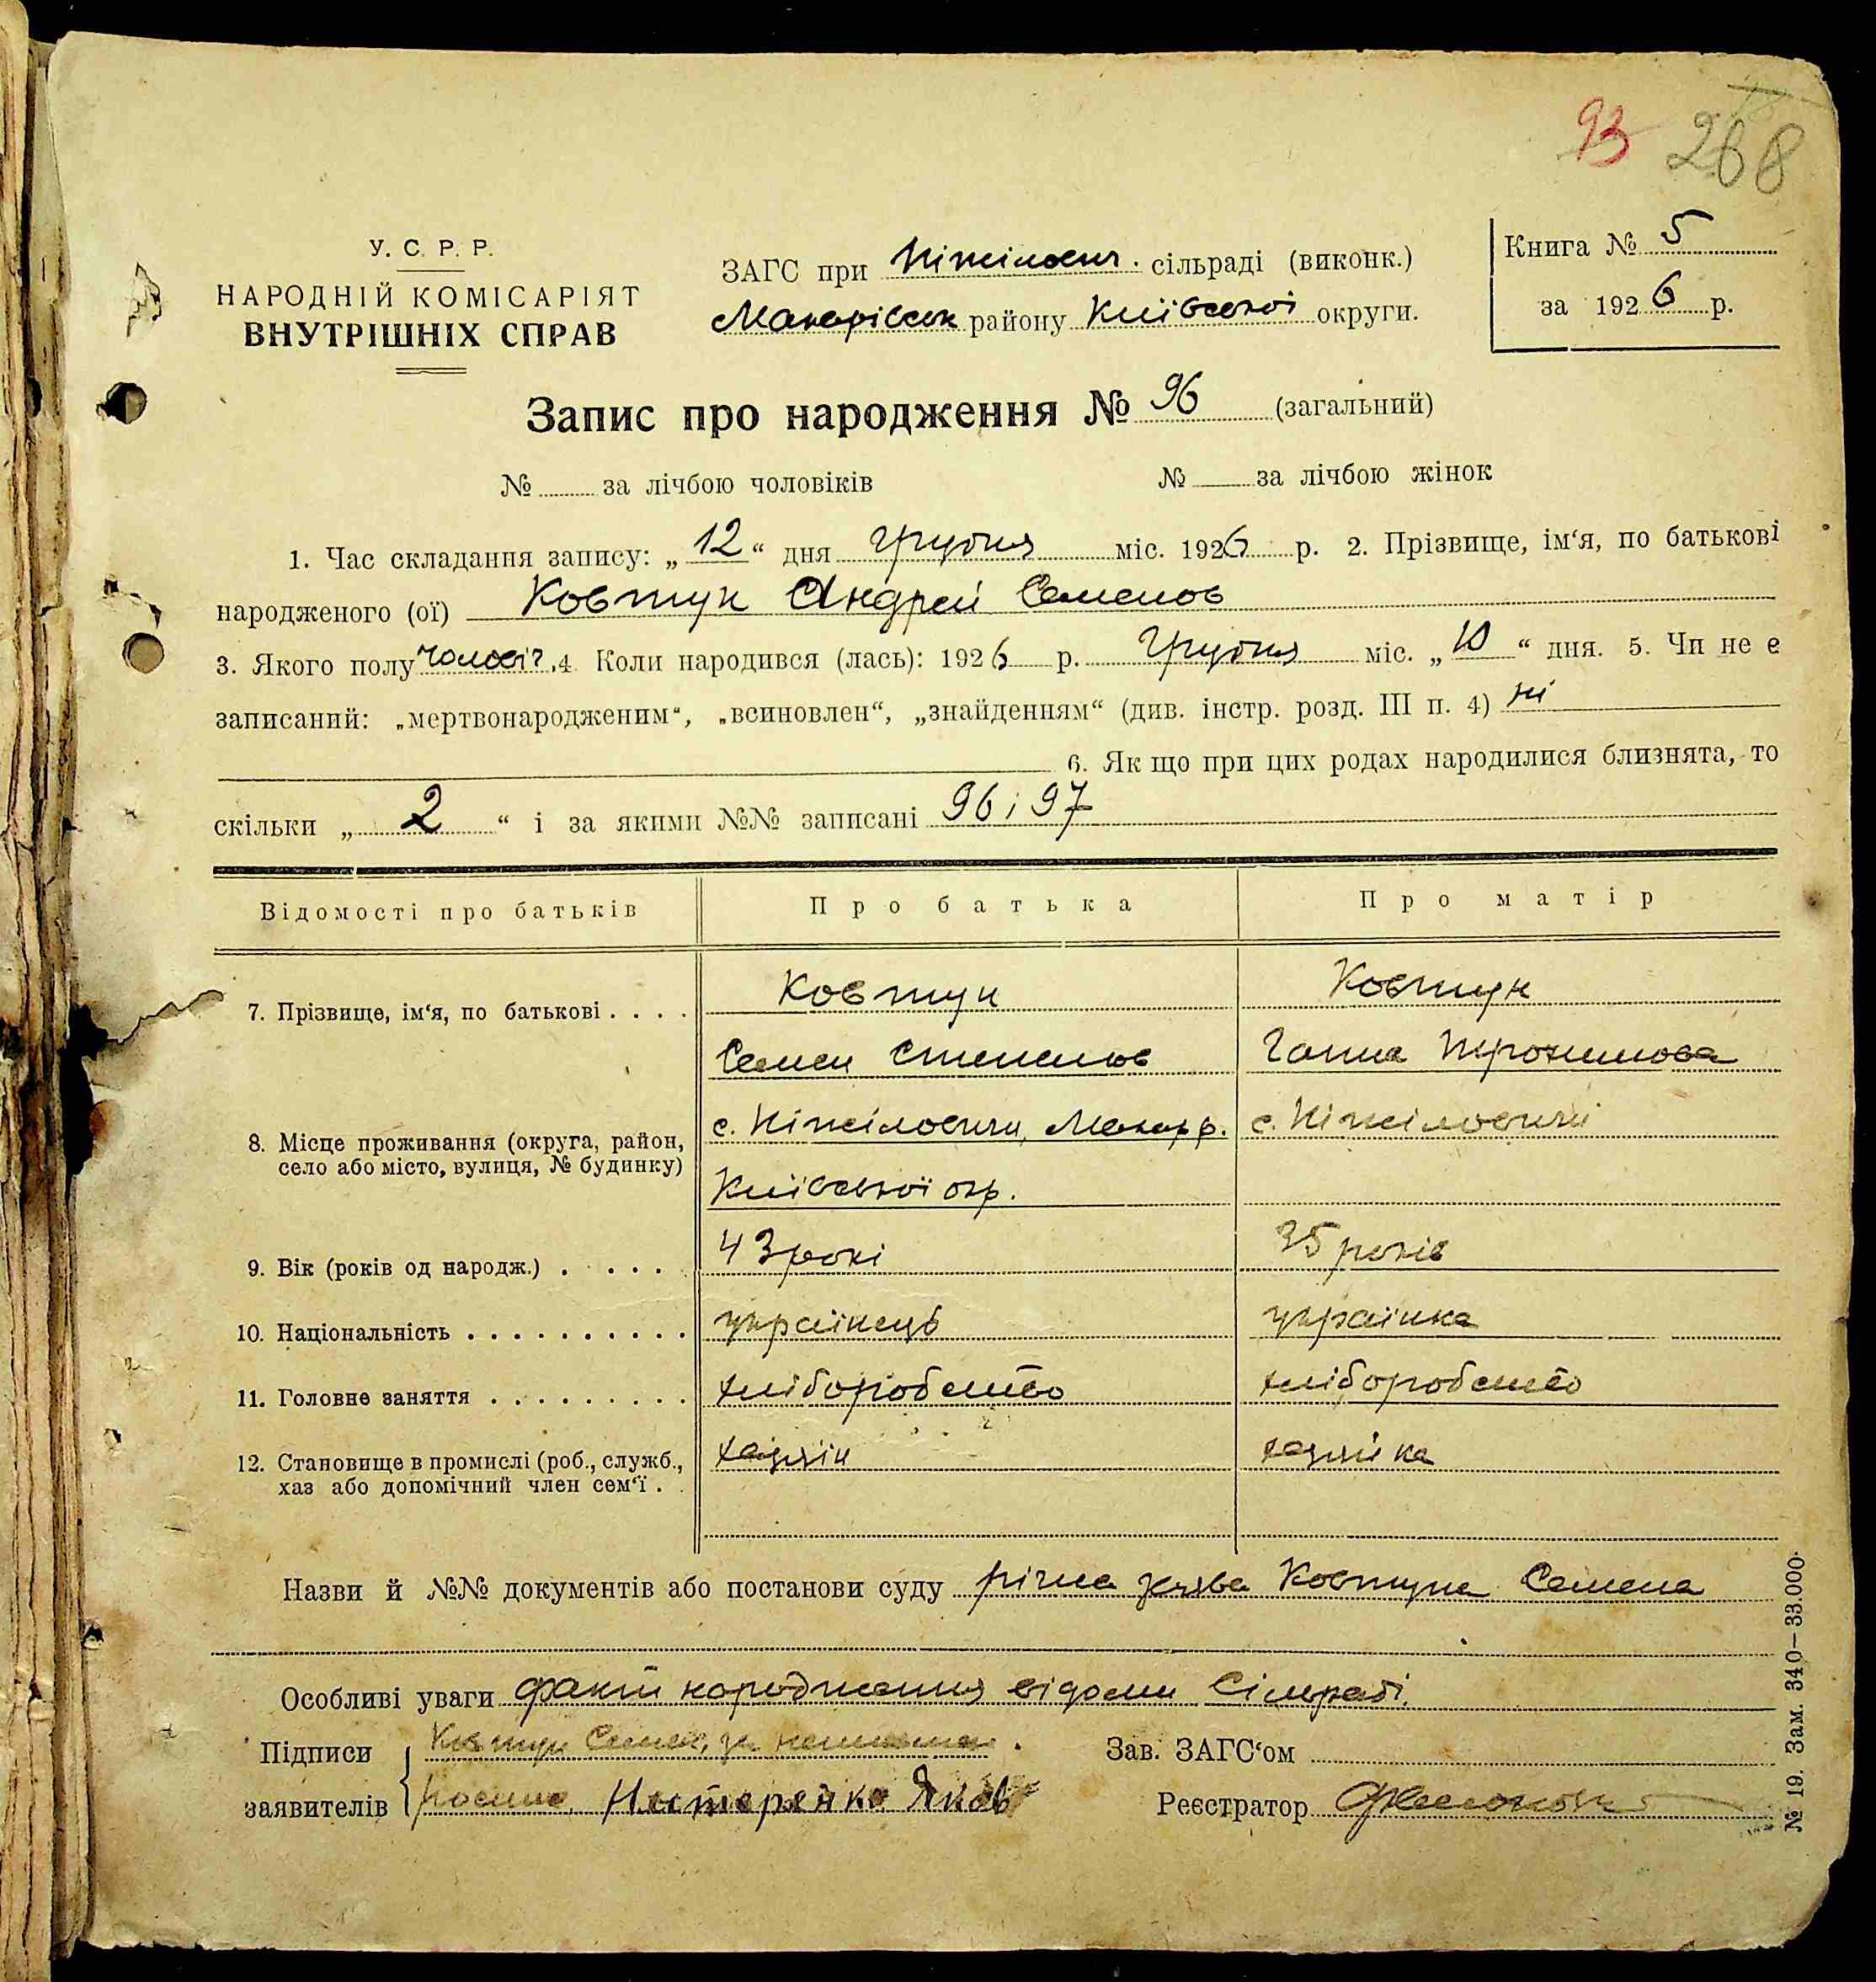 93 268
У. С. Р. Р.
НАРОДНІЙ КОМІСАРІЯТ
ВНУТРІШНІХ СПРАВ
ЗАГС при Ніжілович. сільраді (виконк.)
Макарівськ району Київської округи.
Книга № 5
за 1926 р.
Запис про народження № 96 (загальний)
№ за лічбою чоловіків № за лічбою жінок
1. Час складання запису: „12“ дня грудня міс. 1926 р. 2. Прізвище, ім‘я, по батькові
народженого (ої) Ковтун Андрей Семенов
3. Якого полу чоловіч. 4. Коли народився (лась): 1926 р. Грудня міс. „10“ дня. 5. Чи не є
записаний: „мертвонародженим“, „всиновлен“, „знайденням“ (див. інстр. розд. III п. 4) ні
6. Як що при цих родах народилися близнята, то
скільки „2“ і за якими №№ записані 96 і 97
Відомості про батьків Про батька Про матір
7. Прізвище, ім‘я, по батькові . . . . Ковтун Ковтун
Семен Степанов Ганна
8. Місце проживання (округа, район, село або місто, вулиця, № будинку) с. Ніжіловичи, Макар р. с. Ніжіловичи
Київської окр.
9. Вік (років од народж.) . . . . . 43 рокі 35 років
10. Національність . . . . . . . . . . українець українка
11. Головне заняття . . . . . . . . . хліборобство хліборобство
12. Становище в промислі (роб., служб., хаз або допомічний член сем‘ї . . хазяін хазяїка
Назви й №№ документів або постанови суду річна заява Ковтуна Семена
Особливі уваги факт народження відоми Сільраді.
Підписи Ковтун Семен, за
заявителів Нистеренко Яков
Зав. ЗАГС‘ом
Реєстратор
№ 19. Зам. 340—33.000.